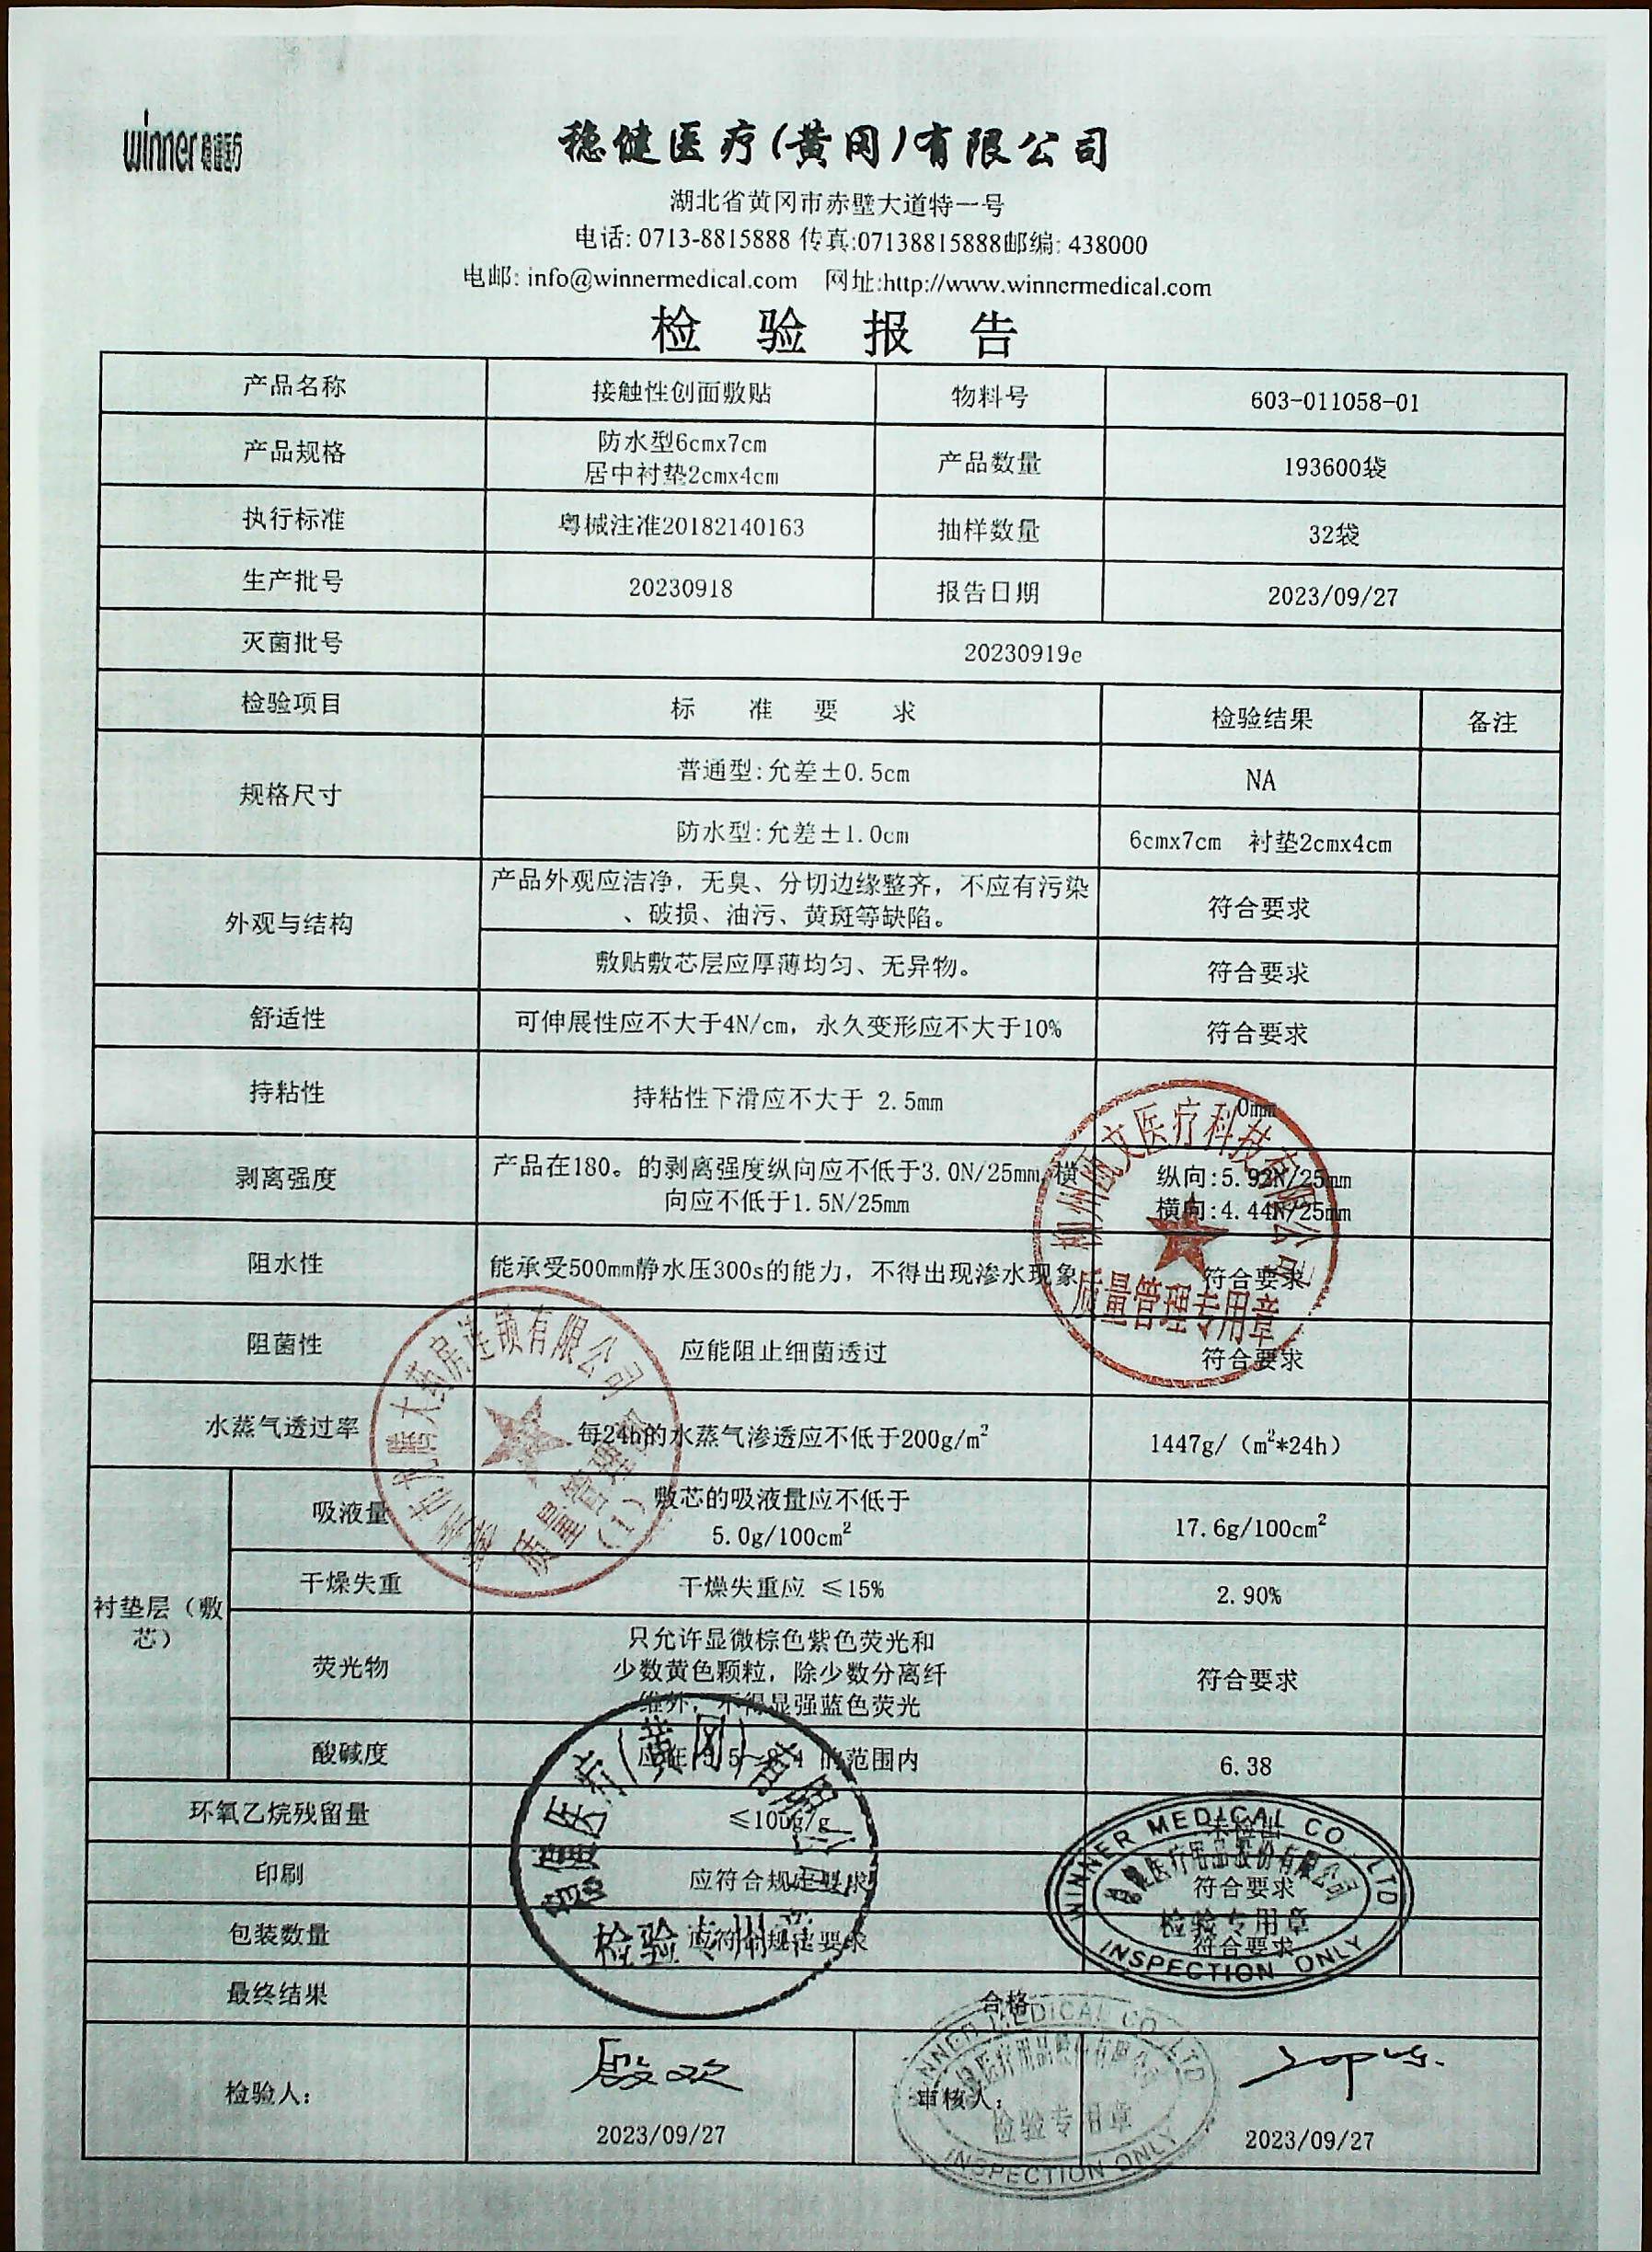 winner 稳健医疗
稳健医疗(黄冈)有限公司
湖北省黄冈市赤壁大道特一号
电话: 0713-8815888 传真:07138815888邮编: 438000
电邮: info@winnermedical.com 网址:http://www.winnermedical.com
检 验 报 告
产品名称 接触性创面敷贴 物料号 603-011058-01
产品规格 防水型6cmx7cm 产品数量 193600袋
居中衬垫2cmx4cm
执行标准 粤械注准20182140163 抽样数量 32袋
生产批号 20230918 报告日期 2023/09/27
灭菌批号 20230919e
检验项目 标 准 要 求 检验结果 备注
规格尺寸 普通型:允差±0.5cm NA
防水型:允差±1.0cm 6cmx7cm 衬垫2cmx4cm
外观与结构 产品外观应洁净，无臭、分切边缘整齐，不应有污染
、破损、油污、黄斑等缺陷。 符合要求
敷贴敷芯层应厚薄均匀、无异物。 符合要求
舒适性 可伸展性应不大于4N/cm，永久变形应不大于10% 符合要求
持粘性 持粘性下滑应不大于 2.5mm 0mm
剥离强度 产品在180。的剥离强度纵向应不低于3.0N/25mm,横 纵向:5.92N/25mm
向应不低于1.5N/25mm 横向:4.44N/25mm
阻水性 能承受500mm静水压300s的能力，不得出现渗水现象 符合要求
阻菌性 应能阻止细菌透过 符合要求
水蒸气透过率 每24h的水蒸气渗透应不低于200g/m² 1447g/（m²*24h）
衬垫层（敷
芯）
吸液量 敷芯的吸液量应不低于
5.0g/100cm² 17.6g/100cm²
干燥失重 干燥失重应 ≤15% 2.90%
荧光物 只允许显微棕色紫色荧光和
少数黄色颗粒，除少数分离纤
维外，不得显强蓝色荧光 符合要求
酸碱度 应在 的范围内 6.38
环氧乙烷残留量 ≤10ug/g 未检出
印刷 应符合规定要求 符合要求
包装数量 应符合规定要求 符合要求
最终结果 合格
检验人: 殷欢 审核人:
2023/09/27 2023/09/27
医疗科技有限公司
质量管理专用章
大药房连锁有限公司
质量管理
(1)
稳健医疗(黄冈)有限公司
检验专用章
WINNER MEDICAL CO., LTD
稳健医疗用品股份有限公司
检验专用章
INSPECTION ONLY
WINNER MEDICAL CO., LTD
稳健医疗用品股份有限公司
检验专用章
INSPECTION ONLY